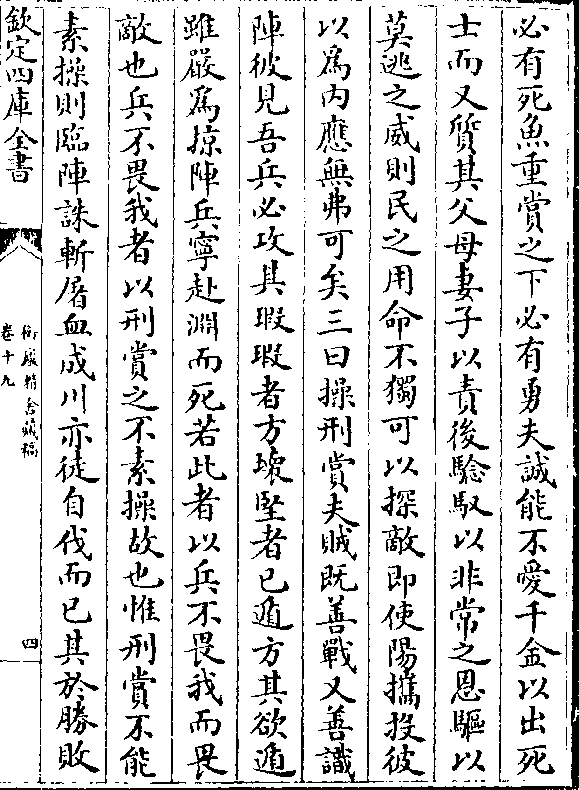 必有死魚重賞之下必有勇夫誠能不愛千金以出死
士而又質其父母妻子以責後驗馭以非常之恩驅以
莫逃之威則民之用命不獨可以探敵即使陽攜投彼
以為内應無弗可矣三曰操刑賞夫賊既善戰又善識
陣彼見吾兵必攻其瑕瑕者方壊堅者已遁方其欲遁
雖嚴為掠陣兵寧赴淵而死若此者以兵不畏我而畏
敵也兵不畏我者以刑賞之不素操故也惟刑賞不能
素操則臨陣誅斬屠血成川亦徒自伐而已其於勝敗
欽定四庫全書
衡廬精舍藏稿
卷十九
四